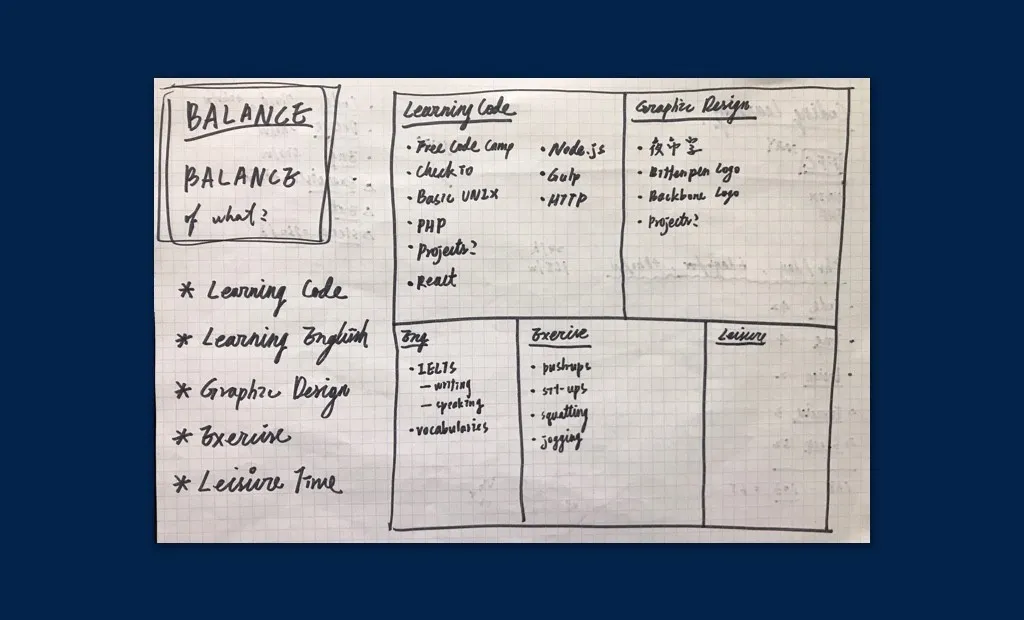 BALANCE
BALANCE
of what?
* Learning Code
* Learning English
* Graphic Design
* Exercise
* Leisure Time
Learning Code
• Free Code Camp
• Check IO
• Basic UNIX
• PHP
• Projects?
• React
• Node.js
• Gulp
• HTTP
Graphic Design
• Bitterpen Logo
• Backbone Logo
• Projects?
Eng
• IELTS
– writing
– speaking
• vocabularies
Exercise
• pushups
• sit-ups
• squatting
• jogging
Leisure